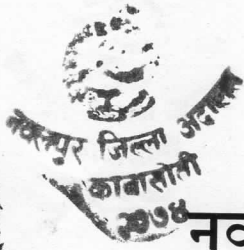 नवलपुर जिल्ला अदालत
कावासोती
२०७४
नव